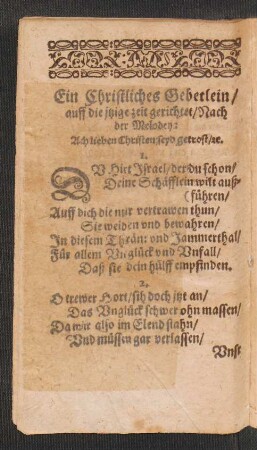 Ein Christliches Gebetlein/
auff die jtzige zeit gerichtet/Nach
der Melodey:
Ach lieben Christen seyd getrost/ꝛc.
1.
DV Hirt Israel/der du schon/
Deine Schäfflein wilt auß-
(führen/
Auff dich die nur vertrawen thun/
Sie weiden vnd bewahren/
In diesem Thrän: vnd Jammerthal/
Für allem Vnglück vnd Vnfall/
Daß sie dein hülff empfinden.
2.
O trewer Hort/sih doch jtzt an/
Das Vnglück schwer ohn massen/
Da wir also im Elend stahn/
Vnd müssen gar verlassen/
Vnst